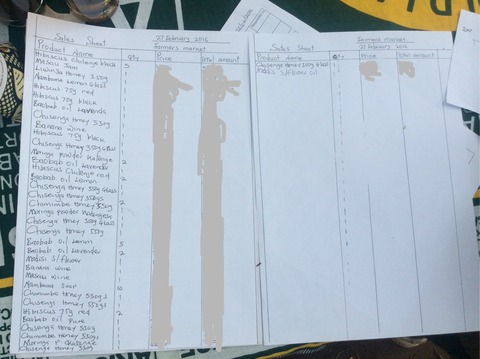 Sales Sheet 27 February 2016
Farmers market
Product Name Qty Price amount
Hibiscus Chilenje black 5
Masau Jam 1
Luwinga Honey 350g 1
Nambuma Lemon grass 1
Hibiscus 75g red 1
Hibiscus 75g black 1
Baobab oil Lavenda 1
Chisenga Honey 550g 1
Banana wine 1
Hibiscus 75g black 1
Chisenga Honey 350g glass 1
Moringa powder Katenje 1
Baobab oil Lavender 2
Hibiscus Chilenje red 1
Baobab oil Lemon 2
Chisenga Honey 350g glass 1
Chisenga Honey 550gs 1
Chamimbe Honey 350g 2
Moringa powder 1
Chisenga Honey 350g glass 1
Chisenga Honey 550g 1
Baobab oil Lemon 5
Baobab oil Lavender 2
Madisi S/flower 1
Banana wine 1
Masau wine 1
Nambuma Soap 10
Chamimbe Honey 550gs 1
Chisenga Honey 550gs 1
Hibiscus 75g red 2
Baobab oil Pure 1
Chisenga Honey 550g 1
Chamimbe Honey 550gs 1
Moringa 1
Chisenga Honey 550g 1
Sales Sheet Farmers market
27 February 2016
Product Name Qty Price Total amount
Chisenga Honey 350g glass 1
Madisi S/flower oil 1